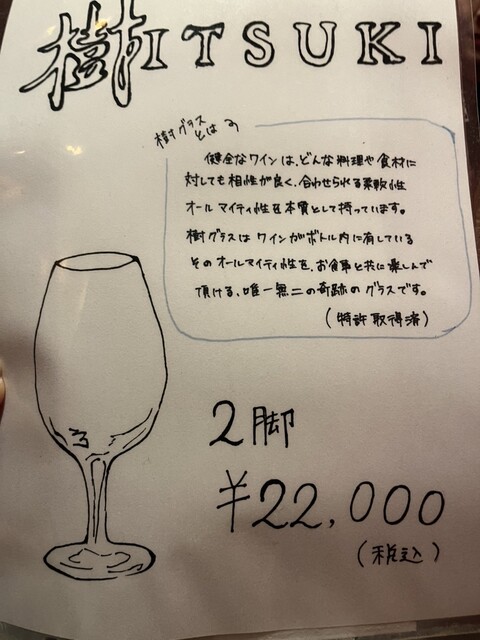 樹ITSUKI
樹グラス
とは??
健全なワインは、どんな料理や食材に
対しても相性が良く、合わせられる柔軟性
オールマイティ性を本質として持っています。
樹グラスはワインがボトル内に有している
そのオールマイティ性を、お食事と共に楽しんで
頂ける、唯一無二の奇跡のグラスです。
(特許取得済)
2脚
¥22,000
(税込)